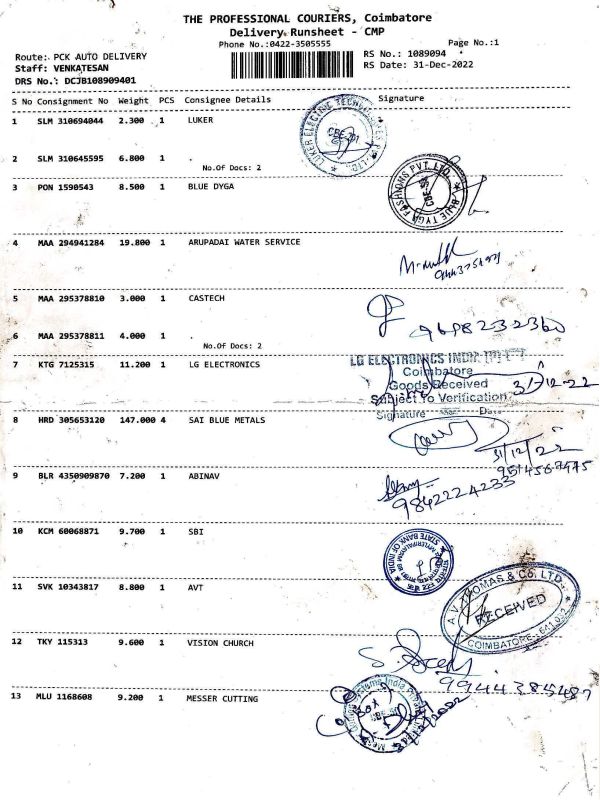 THE PROFESSIONAL COURIERS, Coimbatore
Delivery Runsheet - CMP
Phone No.:0422-3505555
Page No.:1
Route: PCK AUTO DELIVERY
RS No.: 1089094
Staff: VENKATESAN
RS Date: 31-Dec-2022
DRS No.: DCJB108909401
S No Consignment No Weight PCS Consignee Details Signature
1 SLM 310694044 2.300 1 LUKER
2 SLM 310645595 6.800 1 .
No.Of Docs: 2
3 PON 1590543 8.500 1 BLUE DYGA
BLUE TYGA FASHIONS PVT. LTD.
4 MAA 294941284 19.800 1 ARUPADAI WATER SERVICE
5 MAA 295378810 3.000 1 CASTECH
9698232360
6 MAA 295378811 4.000 1 .
No.Of Docs: 2
7 KTG 7125315 11.200 1 LG ELECTRONICS
LG ELECTRONICS INDIA
Coimbatore
Goods Received
31-12-22
Subject To Verification
Signature Date
8 HRD 305653120 147.000 4 SAI BLUE METALS
31/12/22
9514567475
9 BLR 4350909870 7.200 1 ABINAV
9842224233
10 KCM 60068871 9.700 1 SBI
STATE BANK OF INDIA
11 SVK 10343817 8.800 1 AVT
A.V. THOMAS & CO. LTD.,
RECEIVED
COIMBATORE - 641 012
12 TKY 115313 9.600 1 VISION CHURCH
9944385487
13 MLU 1168608 9.200 1 MESSER CUTTING